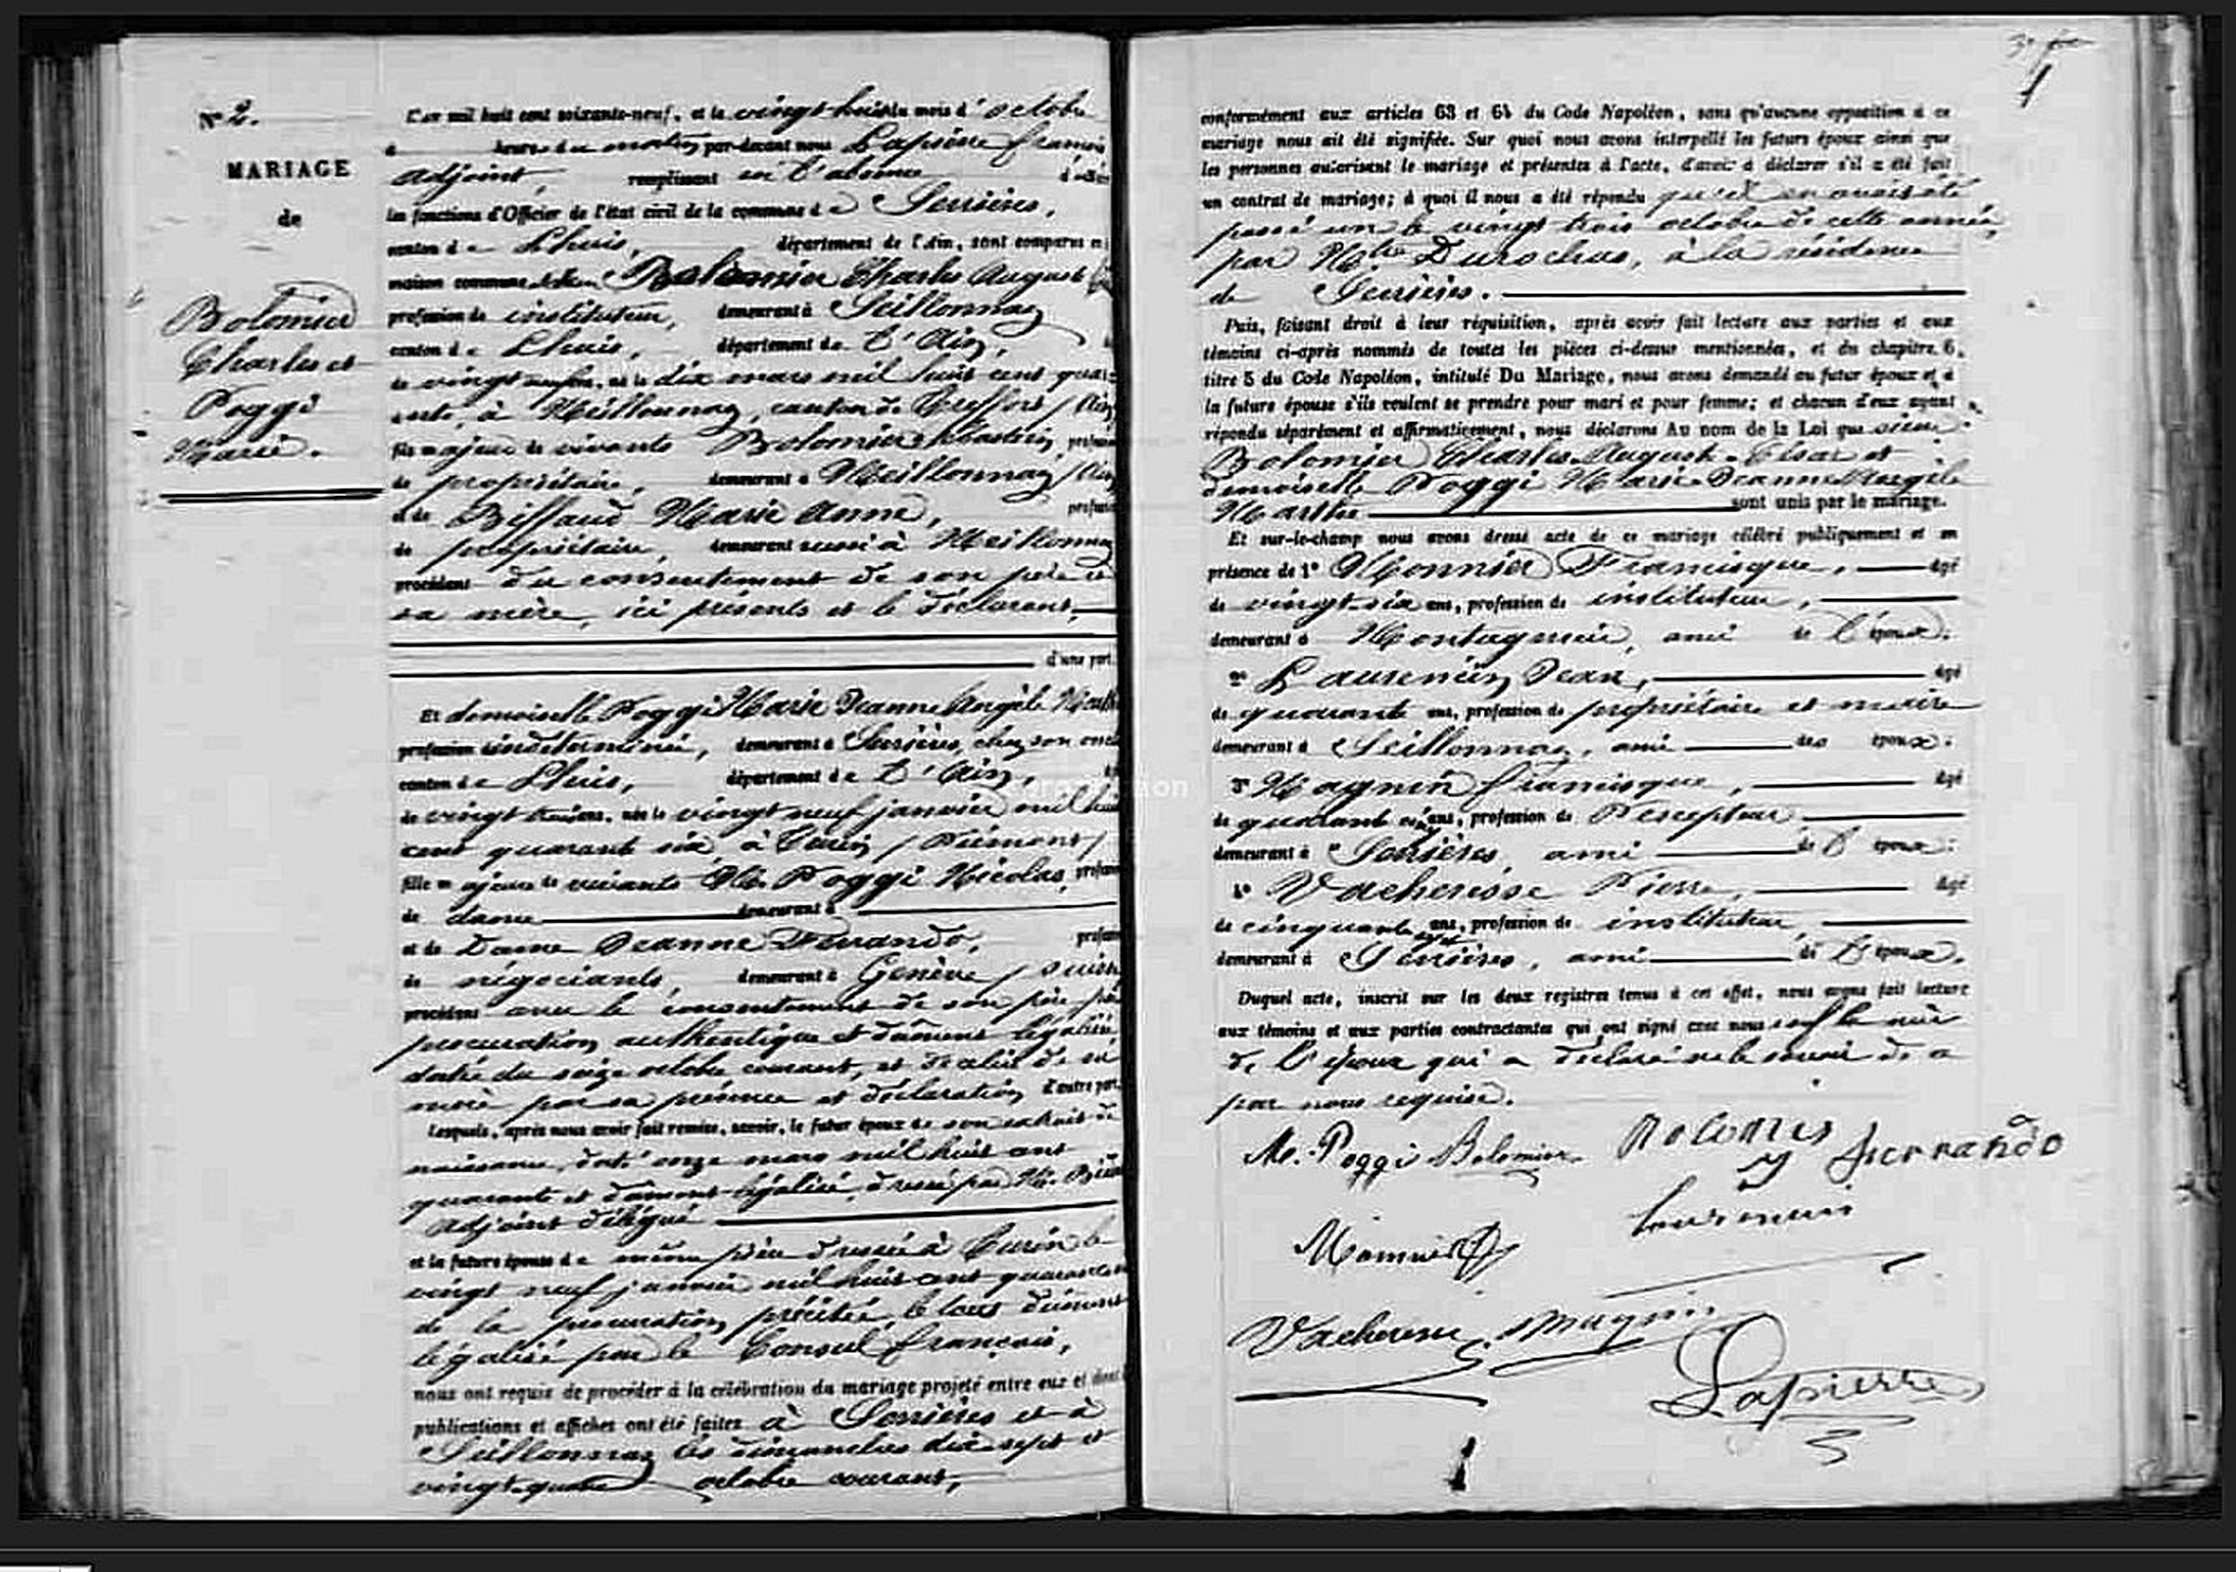 N° 2.
MARIAGE
de
Bolomier
Charles et
Poggi
Marie.
L'an mil huit cent soixante-neuf, et le vingt huit du mois d'octobre
à heures du matin par-devant nous Lapierre François
adjoint, remplissant en l'absence
les fonctions d'Officier de l'état civil de la commune de Serrières,
canton de Lhuis, département de l'Ain, sont comparus en
maison commune Bolomier Charles August
profession de instituteur, demeurant à Seillonnaz
canton de Lhuis, département de l'Ain,
de vingt neuf ans, né le dix mars mil huit cent quar
ante, à Meillonnaz, canton de Treffort (Ain
fils majeur de vivants Bolomier Sébastien, profession
de propriétaire, demeurant à Meillonnaz (Ain
et de Biffaud Marie Anne, profession
de propriétaire, demeurant aussi à Meillonnaz
procédant du consentement de son père et
sa mère, ici présents et le déclarant,
d'une part.
Et demoiselle Poggi Marie Jeanne Angèle Marthe
profession indéterminée, demeurant à Serrières, chez son oncle
canton de Lhuis, département de l'Ain,
de vingt trois ans, née le vingt neuf janvier mil huit
cent quarante six à Turin (Piémont)
fille majeure de vivants M. Poggi Nicolas, profession
de demeurant à
et de Dame Jeanne Ferrando, profession
de négociants, demeurant à Genève (Suisse
procédant avec le consentement de son père par
procuration authentique et dûment légalisée
datée du seize octobre courant, et de celui de sa
mère par sa présence et déclaration d'autre part.
Lesquels, après nous avoir fait remise, savoir, le futur époux de son extrait de
naissance, daté onze mars mil huit cent
quarante et dûment légalisé, dressé par M.
adjoint délégué
et la future épouse de même pièce dressée à Turin le
vingt neuf janvier mil huit cent quarante six
de la procuration précitée, le tout dûment
légalisé par le Consul français,
nous ont requis de procéder à la célébration du mariage projeté entre eux et dont
publications et affiches ont été faites à Serrières et à
Seillonnaz les dimanches dix-sept et
vingt-quatre octobre courant,
conformément aux articles 63 et 64 du Code Napoléon, sans qu'aucune opposition à ce
mariage nous ait été signifiée. Sur quoi nous avons interpellé les futurs époux ainsi que
les personnes autorisant le mariage et présentes à l'acte, d'avoir à déclarer s'il a été fait
un contrat de mariage; à quoi il nous a été répondu qu'il en avait été
passé un le vingt trois octobre de cette année,
par Mtre Durochas, à la résidence
de Serrières.
Puis, faisant droit à leur réquisition, après avoir fait lecture aux parties et aux
témoins ci-après nommés de toutes les pièces ci-dessus mentionnées, et du chapitre 6,
titre 5 du Code Napoléon, intitulé Du Mariage, nous avons demandé au futur époux et à
la future épouse s'ils veulent se prendre pour mari et pour femme; et chacun d'eux ayant
répondu séparément et affirmativement, nous déclarons Au nom de la Loi que sieur
Bolomier Charles August César et
demoiselle Poggi Marie Jeanne Angèle
Marthe sont unis par le mariage.
Et sur-le-champ nous avons dressé acte de ce mariage célébré publiquement et en
présence de 1° Monnier Francisque, âgé
de vingt-six ans, profession de instituteur,
demeurant à Montagnieu, ami de l'époux;
2° Laurencin Jean, âgé
de quarante ans, profession de propriétaire et maire
demeurant à Seillonnaz, ami des époux;
3° Magnin Francisque, âgé
de quarante cinq ans, profession de Percepteur
demeurant à Serrières, ami de l'époux;
4° Vacheresse Pierre, âgé
de cinquante sept ans, profession de instituteur,
demeurant à Serrières, ami de l'époux.
Duquel acte, inscrit sur les deux registres tenus à cet effet, nous avons fait lecture
aux témoins et aux parties contractantes qui ont signé avec nous sauf la mère
de l'époux qui a déclaré ne le savoir de ce
par nous requise.
M. Poggi Bolomier Bolomier J Ferrando
Monnier Laurencin
Vacheresse Magnin
Lapierre